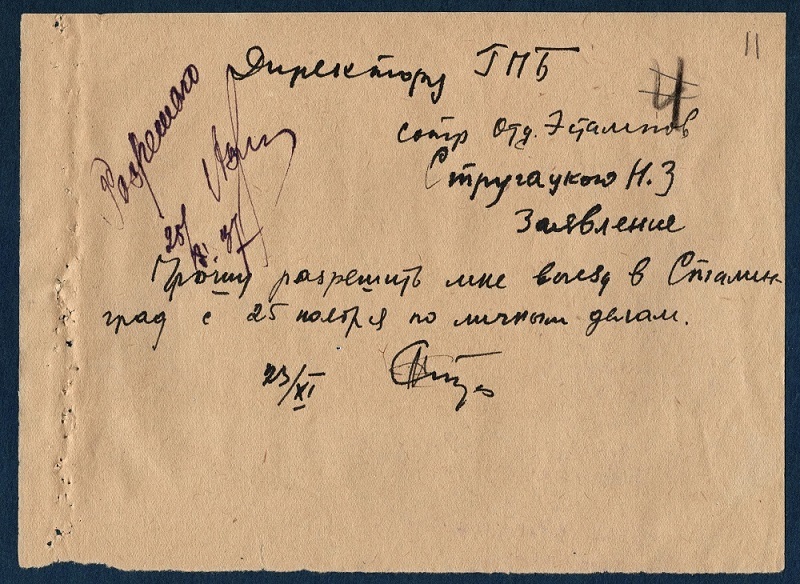 11
Директору ГПБ
4
сотр Отд. Эстампов
Стругацкого Н.З
Заявление
Прошу разрешить мне выезд в Сталин-
град с 25 ноября по личным делам.
23/XI
Разрешаю
25/XI 37